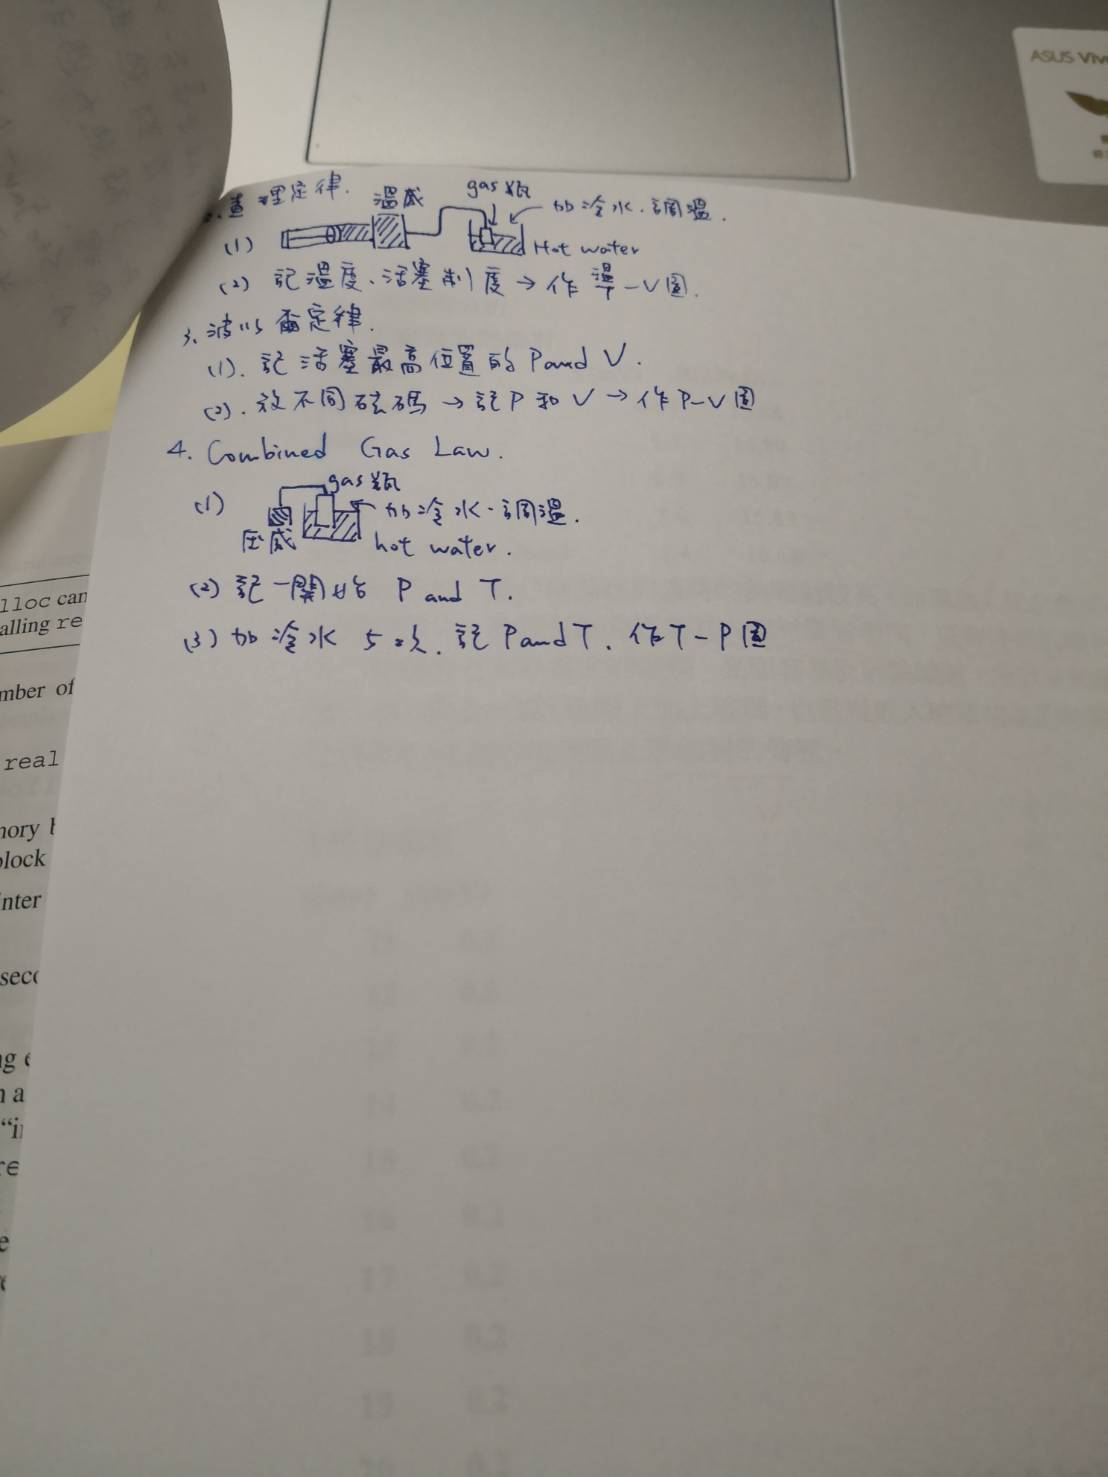 ASUS Viv
查理定律. 溫感 gas 瓶
加冷水.調溫.
(1) Hot water
(2) 記溫度、活塞刻度→作溫T-V圖.
3.波以耳定律.
(1). 記活塞最高位置的 P and V.
(2). 放不同砝碼→記P和V→作P-V圖
4. Combined Gas Law.
gas 瓶
(1) 加冷水.調溫.
压感 hot water.
(2) 記一開始 P and T.
(3) 加冷水 5次. 記 P and T. 作T-P圖
lloc can
alling re
mber of
real
nory b
block
inter
seco